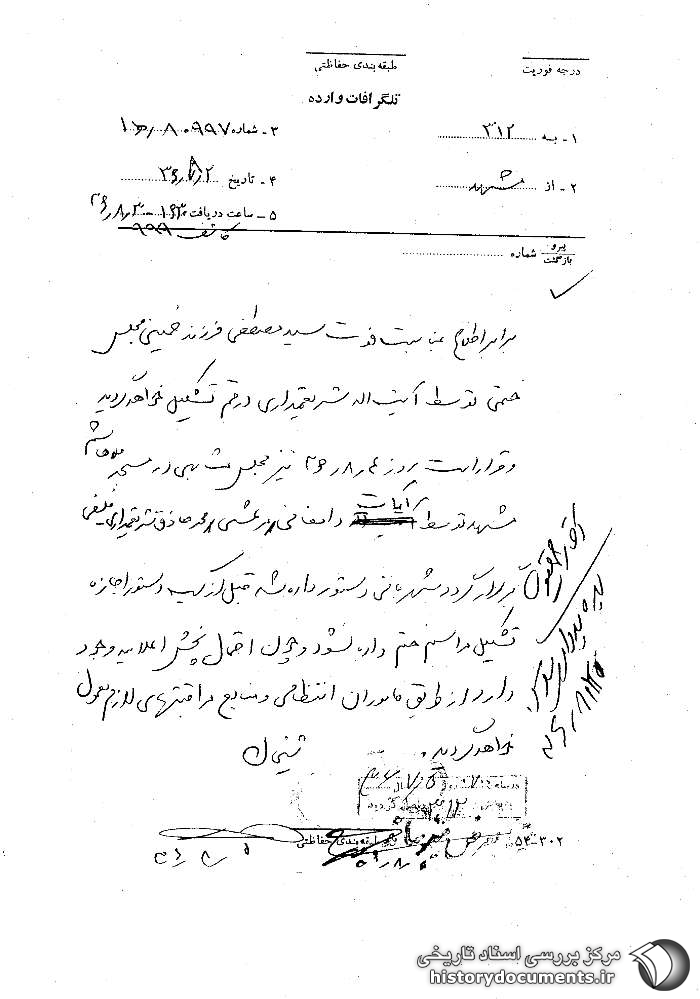 درجه فوریت
طبقه‌بندی حفاظتی
تلگرافات وارده
۱ - به ۳۱۲
۳ - شماره ۸۰۹۹۷
۲ - از مشهد
۴ - تاریخ ۳۶/۸/۲
۵ - ساعت دریافت ۱۶۳۰
۹۹۹
پیرو بازگشت شماره
برابر اطلاع بمناسبت فوت سید مصطفی فرزند خمینی مجلس
ختمی توسط آیت اله شریعتمداری در قم تشکیل خواهد گردید
و قرار است روز ۳۶/۸/۴ نیز مجلس مشابهی در مسجد ملاهاشم
مشهد توسط آیات دامغانی مرعشی محمد صادق شریعتمداری فلسفی
برگزار گردد شهربانی دستور داده شد قبل از کسب دستور اجازه
تشکیل مراسم ختم داده نشود و چون احتمال پخش اعلامیه وجود
دارد از طریق ماموران انتظامی و منابع مراقبتهای لازم معمول
خواهد گردید.
طبقه‌بندی حفاظتی
۵۴-۳۰۲
مرکز بررسی اسناد تاریخی
historydocuments.ir